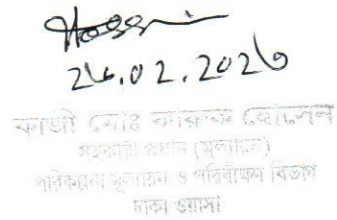 Hossain
26.02.2026
কাজী মোঃ ফারুক হোসেন
সহকারী প্রধান (মূল্যায়ন)
পরিকল্পনা মূল্যায়ন ও পরিবীক্ষণ বিভাগ
ঢাকা ওয়াসা